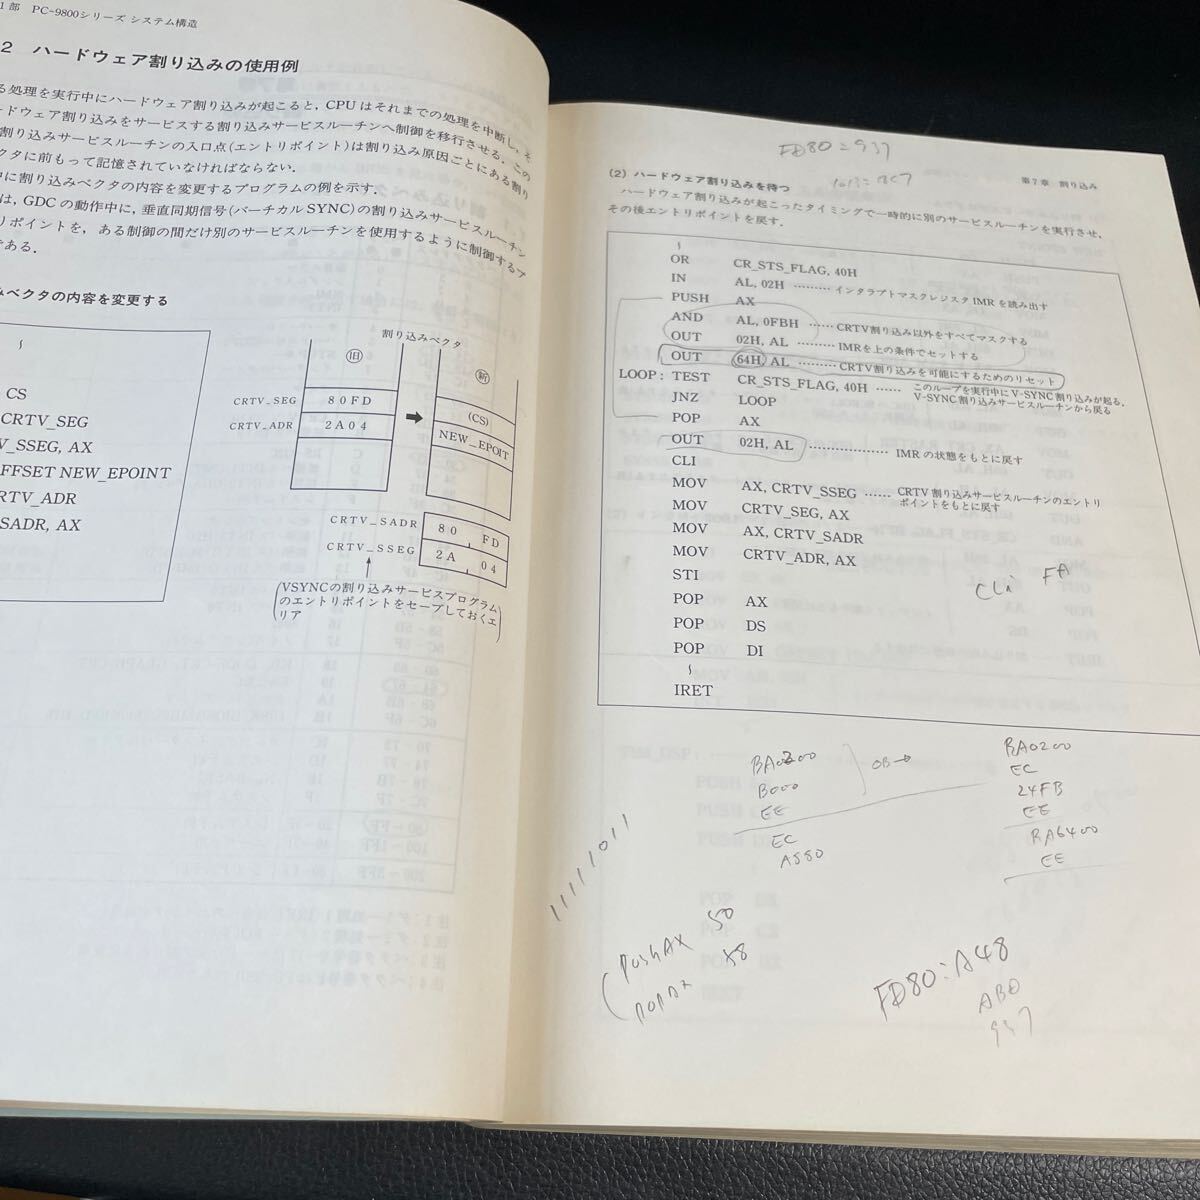 1部 PC-9800シリーズ システム構造
2 ハードウェア割り込みの使用例
る処理を実行中にハードウェア割り込みが起こると,CPUはそれまでの処理を中断し,そ
ードウェア割り込みをサービスする割り込みサービスルーチンへ制御を移行させる.この
割り込みサービスルーチンの入口点(エントリポイント)は割り込み原因ごとにある割り
クタに前もって記憶されていなければならない.
中に割り込みベクタの内容を変更するプログラムの例を示す.
は,GDCの動作中に,垂直同期信号(バーチカルSYNC)の割り込みサービスルーチン
リポイントを,ある制御の間だけ別のサービスルーチンを使用するように制御するプ
である.
みベクタの内容を変更する
〜
CS
CRTV_SEG
V_SSEG, AX
FFSET NEW_EPOINT
RTV_ADR
SADR, AX
割り込みベクタ
旧
新
CRTV_SEG 80FD
CRTV_ADR 2A04
(CS)
NEW_EPOIT
CRTV_SADR 80 FD
CRTV_SSEG 2A 04
(VSYNCの割り込みサービスプログラム
のエントリポイントをセーブしておくエ
リア)
FD80:937
第7章 割り込み
(2) ハードウェア割り込みを待つ
ハードウェア割り込みが起こったタイミングで一時的に別のサービスルーチンを実行させ,
その後エントリポイントを戻す.
〜
OR CR_STS_FLAG, 40H
IN AL, 02H ……… インタラプトマスクレジスタIMRを読み出す
PUSH AX
AND AL, 0FBH …… CRTV割り込み以外をすべてマスクする
OUT 02H, AL ……… IMRを上の条件でセットする
OUT 64H, AL ……… CRTV割り込みを可能にするためのリセット
LOOP: TEST CR_STS_FLAG, 40H …… このループを実行中にV-SYNC割り込みが起る.
V-SYNC割り込みサービスルーチンから戻る
JNZ LOOP
POP AX
OUT 02H, AL ……………… IMRの状態をもとに戻す
CLI
MOV AX, CRTV_SSEG …… CRTV割り込みサービスルーチンのエントリ
ポイントをもとに戻す
MOV CRTV_SEG, AX
MOV AX, CRTV_SADR
MOV CRTV_ADR, AX
STI
CLi FA
POP AX
POP DS
POP DI
〜
IRET
BA0200
B000
EE
EC
A880
OB→
BA0200
EC
24FB
EE
BA6400
EE
11111011
PushAX 50
58
FD80:A48
AB0
937